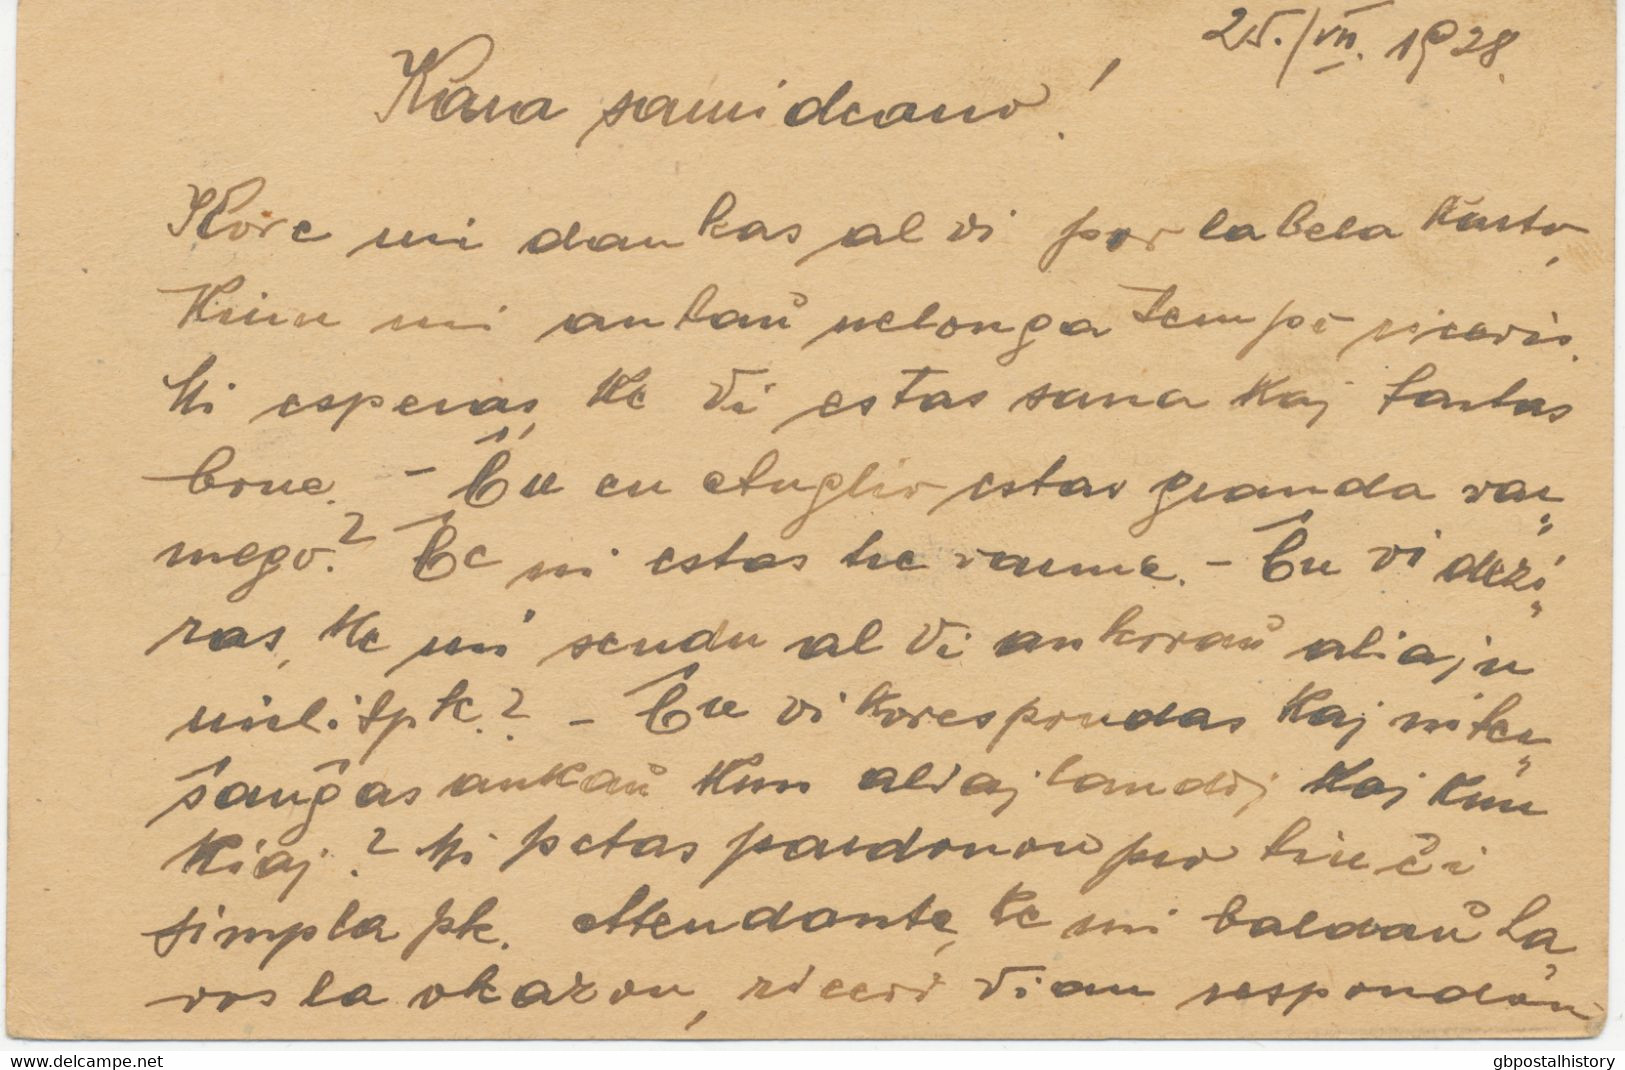 25./VII. 1928.
Kara samideano!
Kore mi dankas al vi por la bela karto,
kiun mi antaŭ nelonga tempo ricevis.
Mi esperas, ke Vi estas sana kaj fartas
bone. - Ĉu en Anglio estas granda var-
mego? Ĉe ni estas tre varme. - Ĉu vi dezi-
ras, ke mi sendu al Vi ankoraŭ aliajn
milit pk.? - Ĉu vi korespondas kaj interŝanĝas
ankaŭ kun aliaj landoj kaj kun
kiaj? Mi petas pardonon pro tiu ĉi
simpla pk. Atendante, ke mi baldaŭ ha-
vos la okazon, ricevi Vian respondon
www.delcampe.net
gbpostalhistory